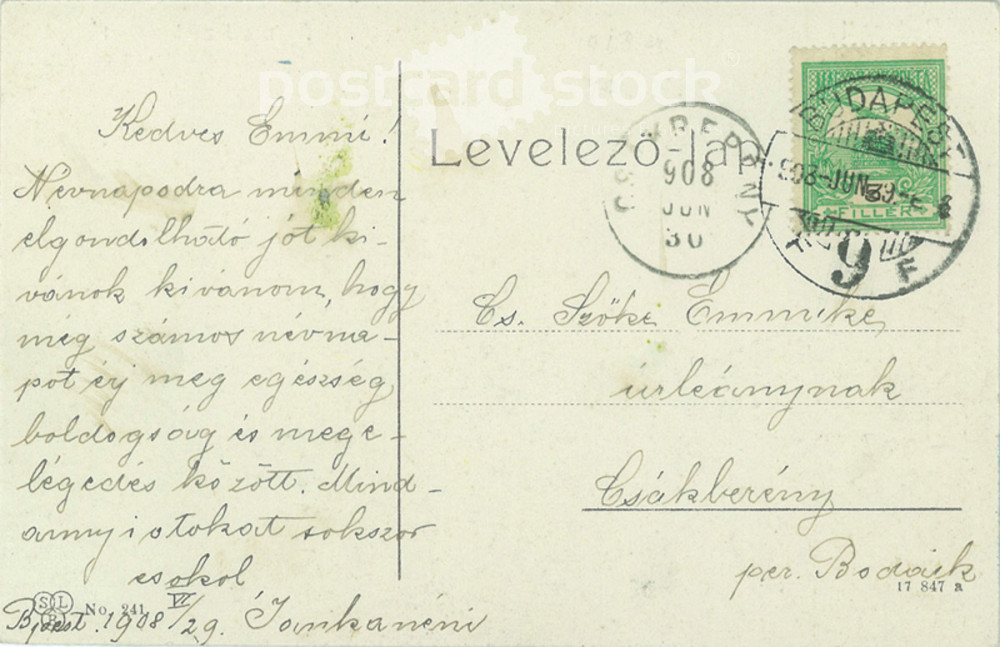 postcard stock
Kedves Emmi!
Névnapodra minden
elgondolható jót ki-
vánok kivánom, hogy
még számos névna-
pot érj meg egészség,
boldogság és mege-
légedés között. Mind-
annyiotokat sokszor
csokol
Bpest. 1908 VI/29. Jankanéni
SLB No. 241
Levelező-lap.
908
JUN
30
BUDAPEST
908-JUN 29
9 F
FILLÉR
Cs. Szőke Emmike
úrleánynak
Csákberény
per. Bodaik
17 847 a